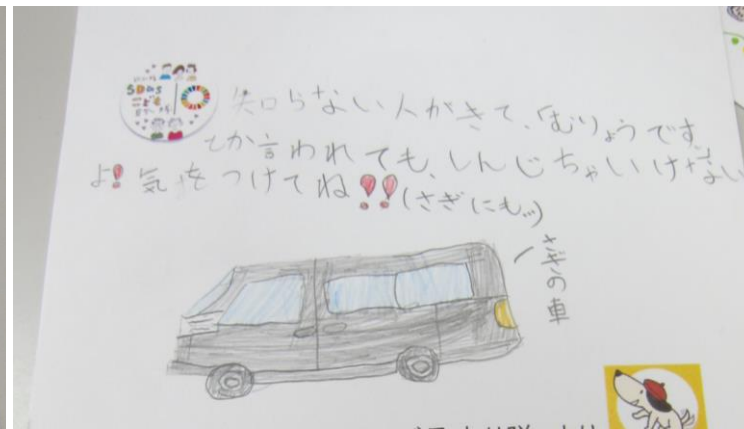 SDGs
こども
知らない人がきて、「むりょうです」
とか言われても、しんじちゃいけない
よ!気をつけてね!!(さぎにも…)
さぎの車